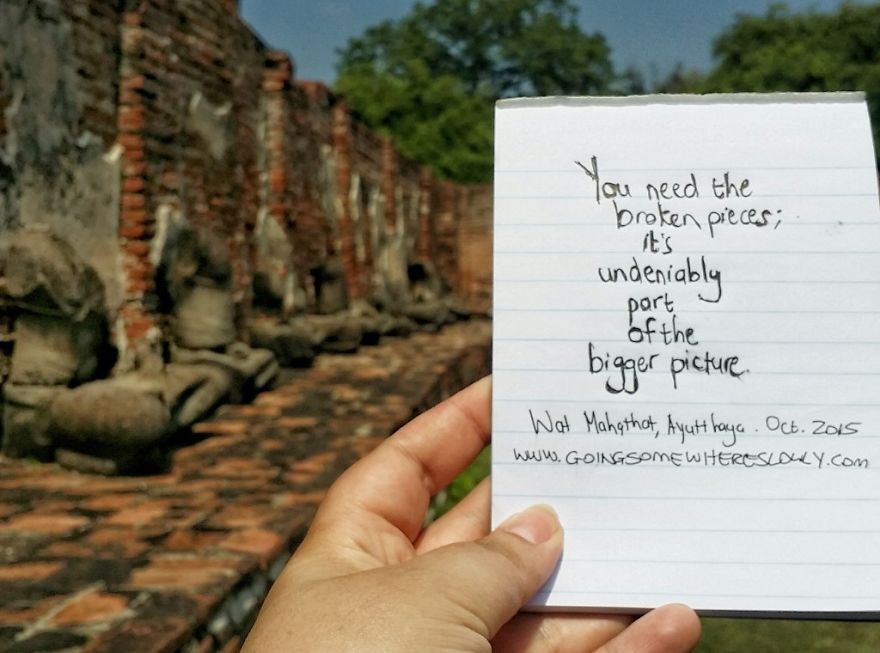 You need the
broken pieces;
it's
undeniably
part
of the
bigger picture.
Wat Mahathat, Ayutthaya. Oct. 2015
www.GOINGSOMEWHERESLOWLY.com